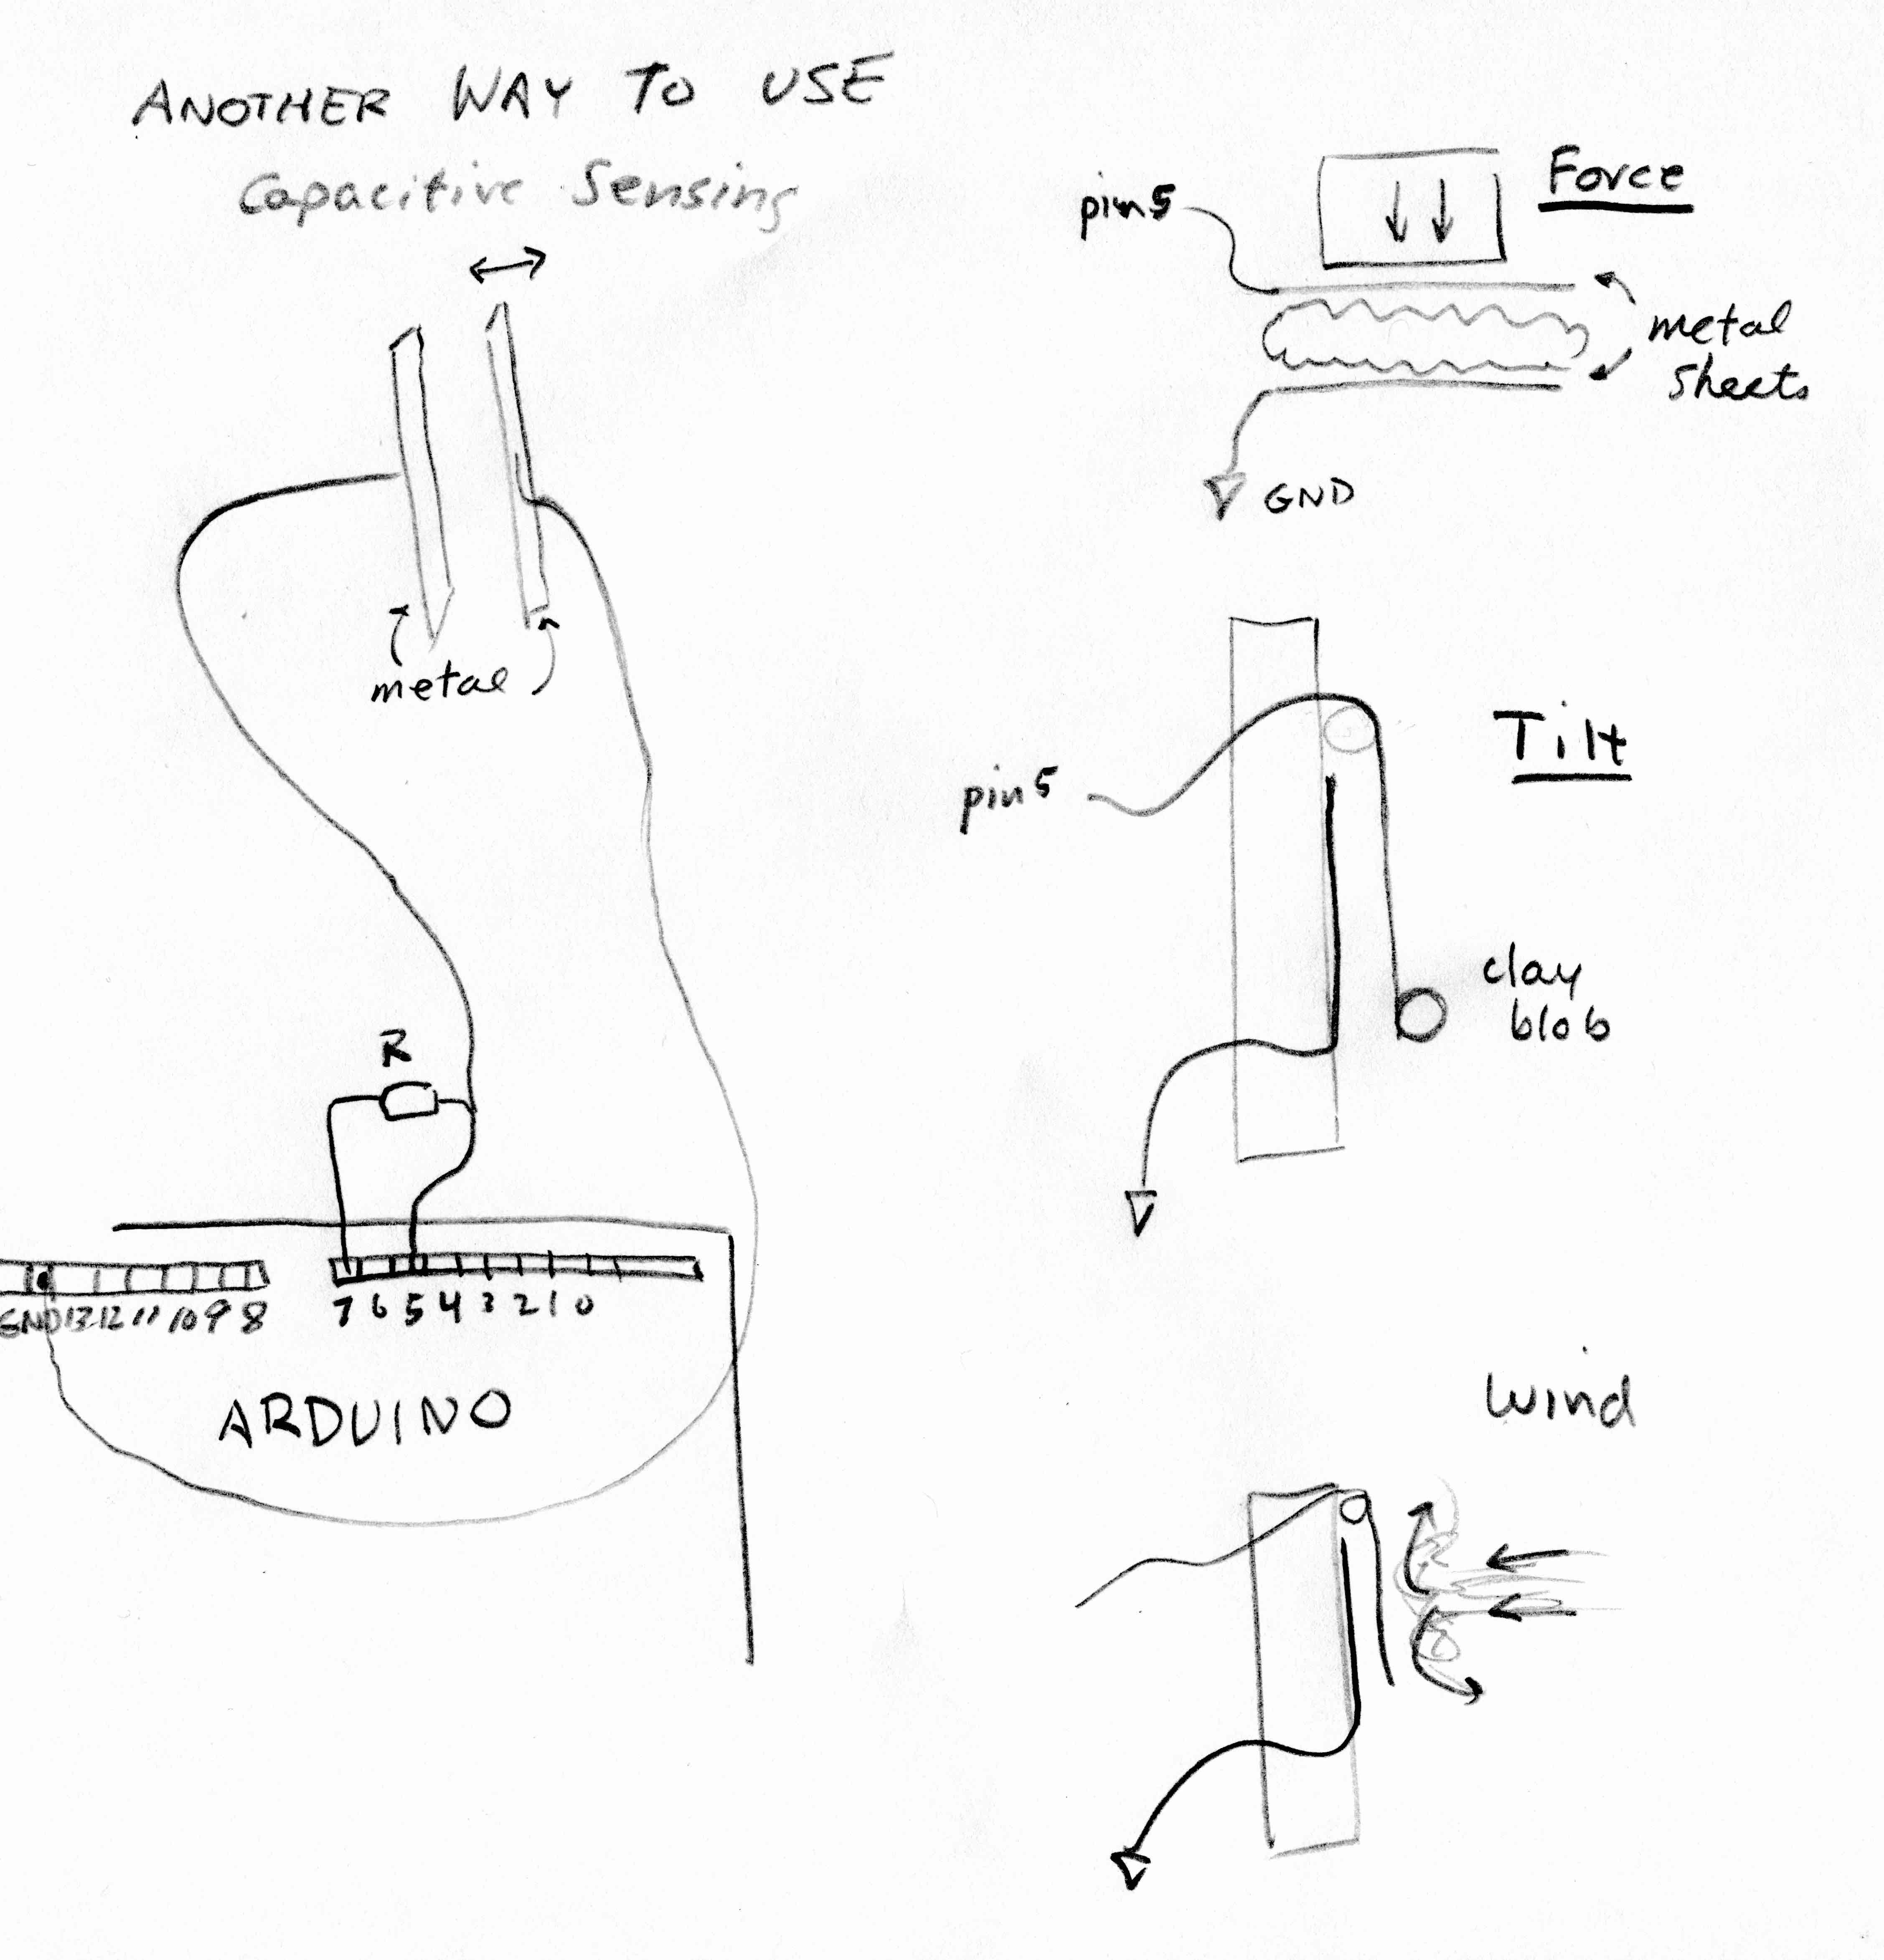 ANOTHER WAY TO USE
Capacitive Sensing
metal
R
GND 13 12 11 10 9 8
7 6 5 4 3 2 1 0
ARDUINO
Force
pin 5
metal
sheets
GND
Tilt
pin 5
clay
blob
Wind